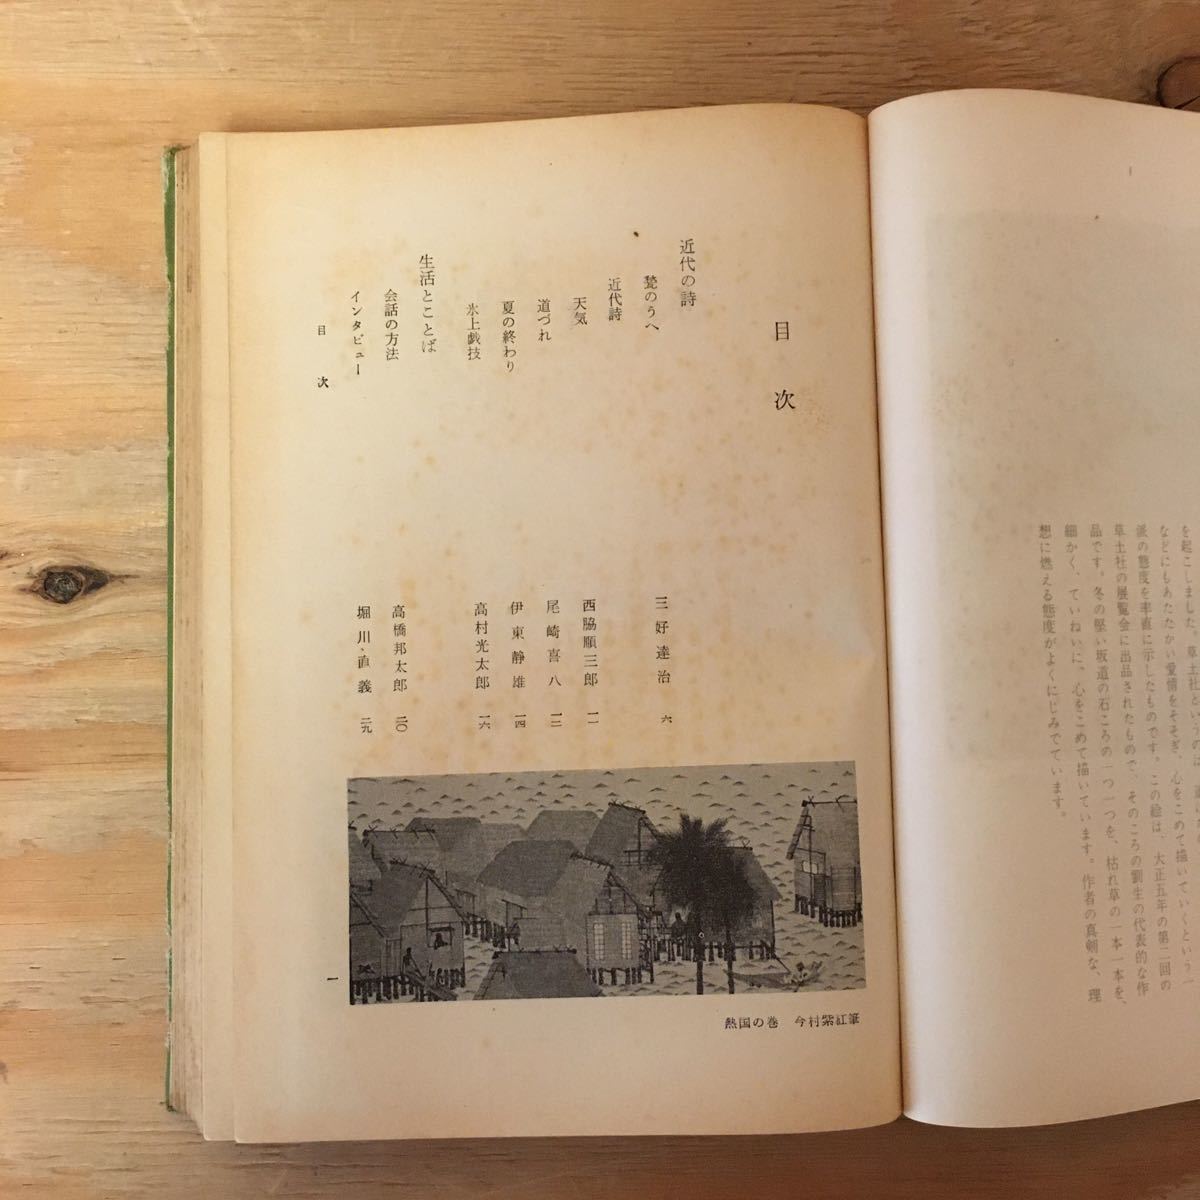 を起こしました。草土社というのは、
などにもあたたかい愛情をそそぎ、心をこめて描いていくという一
派の態度を率直に示したものです。この絵は、大正五年の第二回の
草土社の展覧会に出品されたもので、そのころの劉生の代表的な作
品です。冬の堅い坂道の石ころの一つ一つを、枯れ草の一本一本を、
細かく、ていねいに、心をこめて描いています。作者の真剣な、理
想に燃える態度がよくにじみでています。
目次
近代の詩
甃のうへ 三好達治 六
近代詩
天気 西脇順三郎 一一
道づれ 尾崎喜八 一二
夏の終わり 伊東静雄 一四
氷上戯技 高村光太郎 一六
生活とことば
会話の方法 高橋邦太郎 二〇
インタビュー 堀川直義 二九
目次
一
熱国の巻 今村紫紅筆